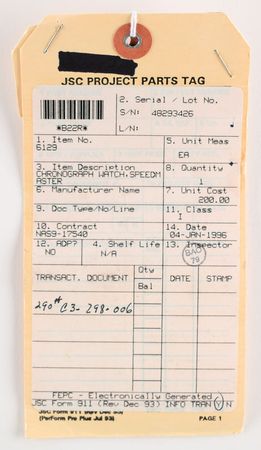 JSC PROJECT PARTS TAG
*B22R*
2. Serial / Lot No.
S/N: 48293426
L/N:
1. Item No.
6129
5. Unit Meas
EA
3. Item Description
CHRONOGRAPH WATCH,SPEEDM
ASTER
8. Quantity
1
6. Manufacturer Name
7. Unit Cost
200.00
9. Doc Type/No/Line
11. Class
I
10. Contract
NAS9-17540
14. Date
04-JAN-1996
12. ADP?
NO
4. Shelf Life
N/A
13. Inspector
BAO
79
TRANSACT. DOCUMENT
Qty
Bal
DATE
STAMP
C3-298-006
FEPC - Electronically Generated
JSC Form 911 (Rev Dec 93) INFO TRAN Y N
JSC Form 911 (Rev Dec 93)
(Perform Pro Plus Jul 93)
PAGE 1